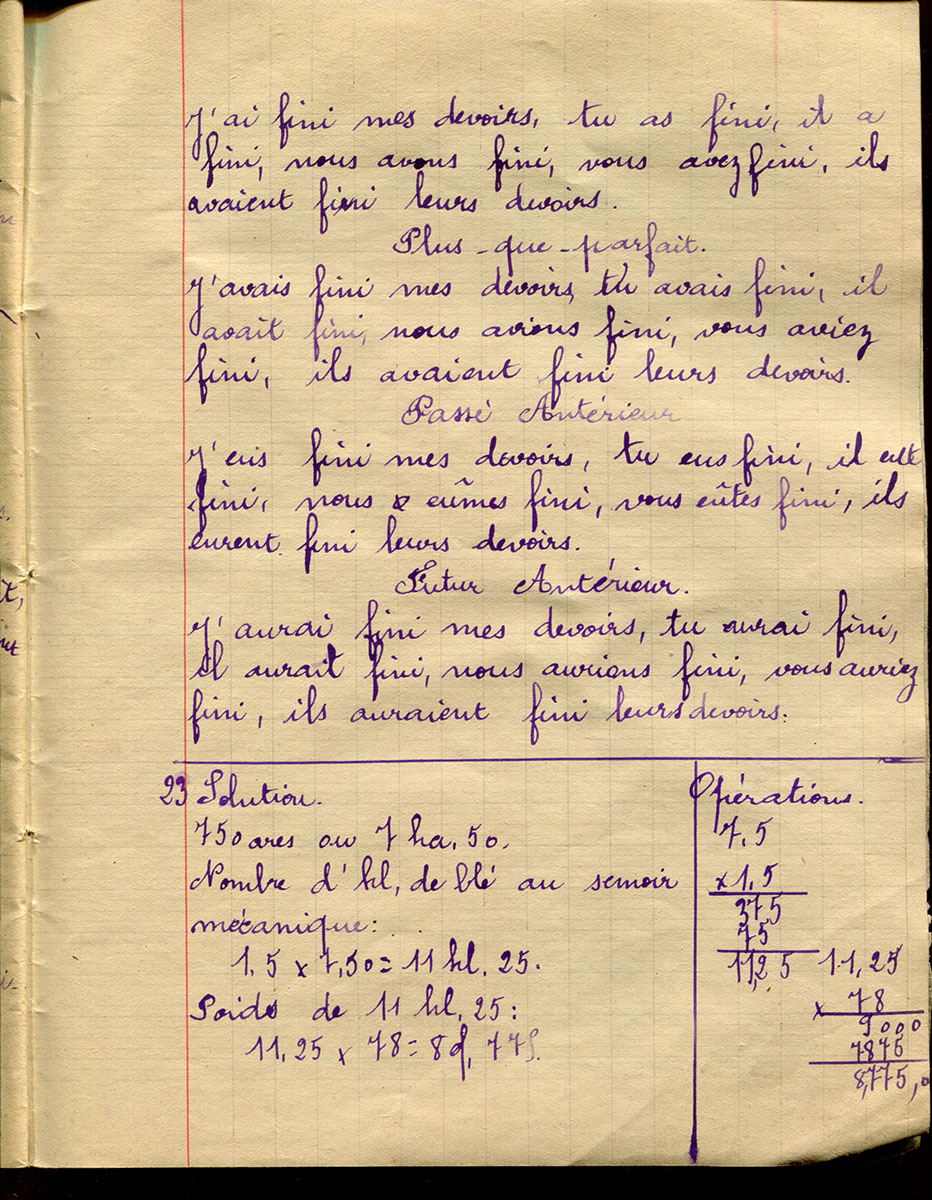 J'ai fini mes devoirs, tu as fini, il a
fini, nous avons fini, vous avez fini, ils
avaient fini leurs devoirs.
Plus-que-parfait.
J'avais fini mes devoirs, tu avais fini, il
avait fini, nous avions fini, vous aviez
fini, ils avaient fini leurs devoirs.
Passé Antérieur
J'eus fini mes devoirs, tu eus fini, il eut
fini, nous eûmes fini, vous eûtes fini, ils
eurent fini leurs devoirs.
Futur Antérieur.
J'aurai fini mes devoirs, tu aurai fini,
il aurait fini, nous aurions fini, vous auriez
fini, ils auraient fini leurs devoirs.
23 Solution.
750 ares ou 7 ha, 50.
Nombre d'hl, de blé au semoir
mécanique:
1,5 x 7,50 = 11 hl, 25.
Poids de 11 hl, 25:
11,25 x 78 = 8
Opérations.
7,5
x 1,5
375
75
11,25 11,25
x 78
9000
7875
8,775,0